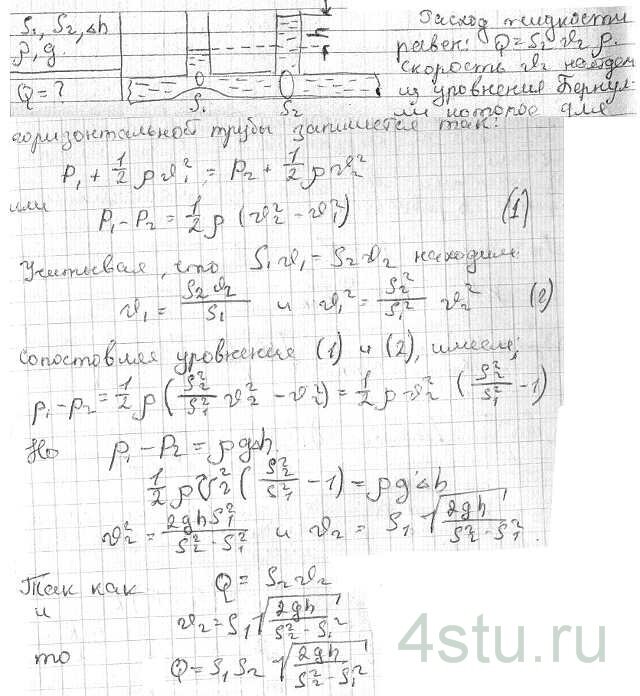 S₁, S₂, Δh
ρ, g.
Q = ?
h
S₁ S₂
Расход жидкости
равен: Q = S₂ v₂ ρ.
скорость v₂ найдем
из уровнения Бернул-
ли которое для
горизонтальной трубы запишется так:
P₁ + 1/2 ρ v₁² = P₂ + 1/2 ρ v₂²
или
P₁ - P₂ = 1/2 ρ (v₂² - v₁²) (1)
Учитывая, что S₁ v₁ = S₂ v₂ находим:
v₁ = S₂ v₂ / S₁ и v₁² = S₂² / S₁² v₂² (2)
Сопоставляя уровнения (1) и (2), имеем:
p₁ - p₂ = 1/2 ρ (S₂²/S₁² v₂² - v₂²) = 1/2 ρ v₂² (S₂²/S₁² - 1)
Но p₁ - p₂ = ρ g Δh.
1/2 ρ v₂² (S₂²/S₁² - 1) = ρ g Δh
v₂² = 2ghS₁² / S₂² - S₁² и v₂ = S₁ √(2gh / S₂² - S₁²).
Так как Q = S₂ v₂
и v₂ = S₁ √(2gh / S₂² - S₁²)
то Q = S₁ S₂ √(2gh / S₂² - S₁²)
4stu.ru